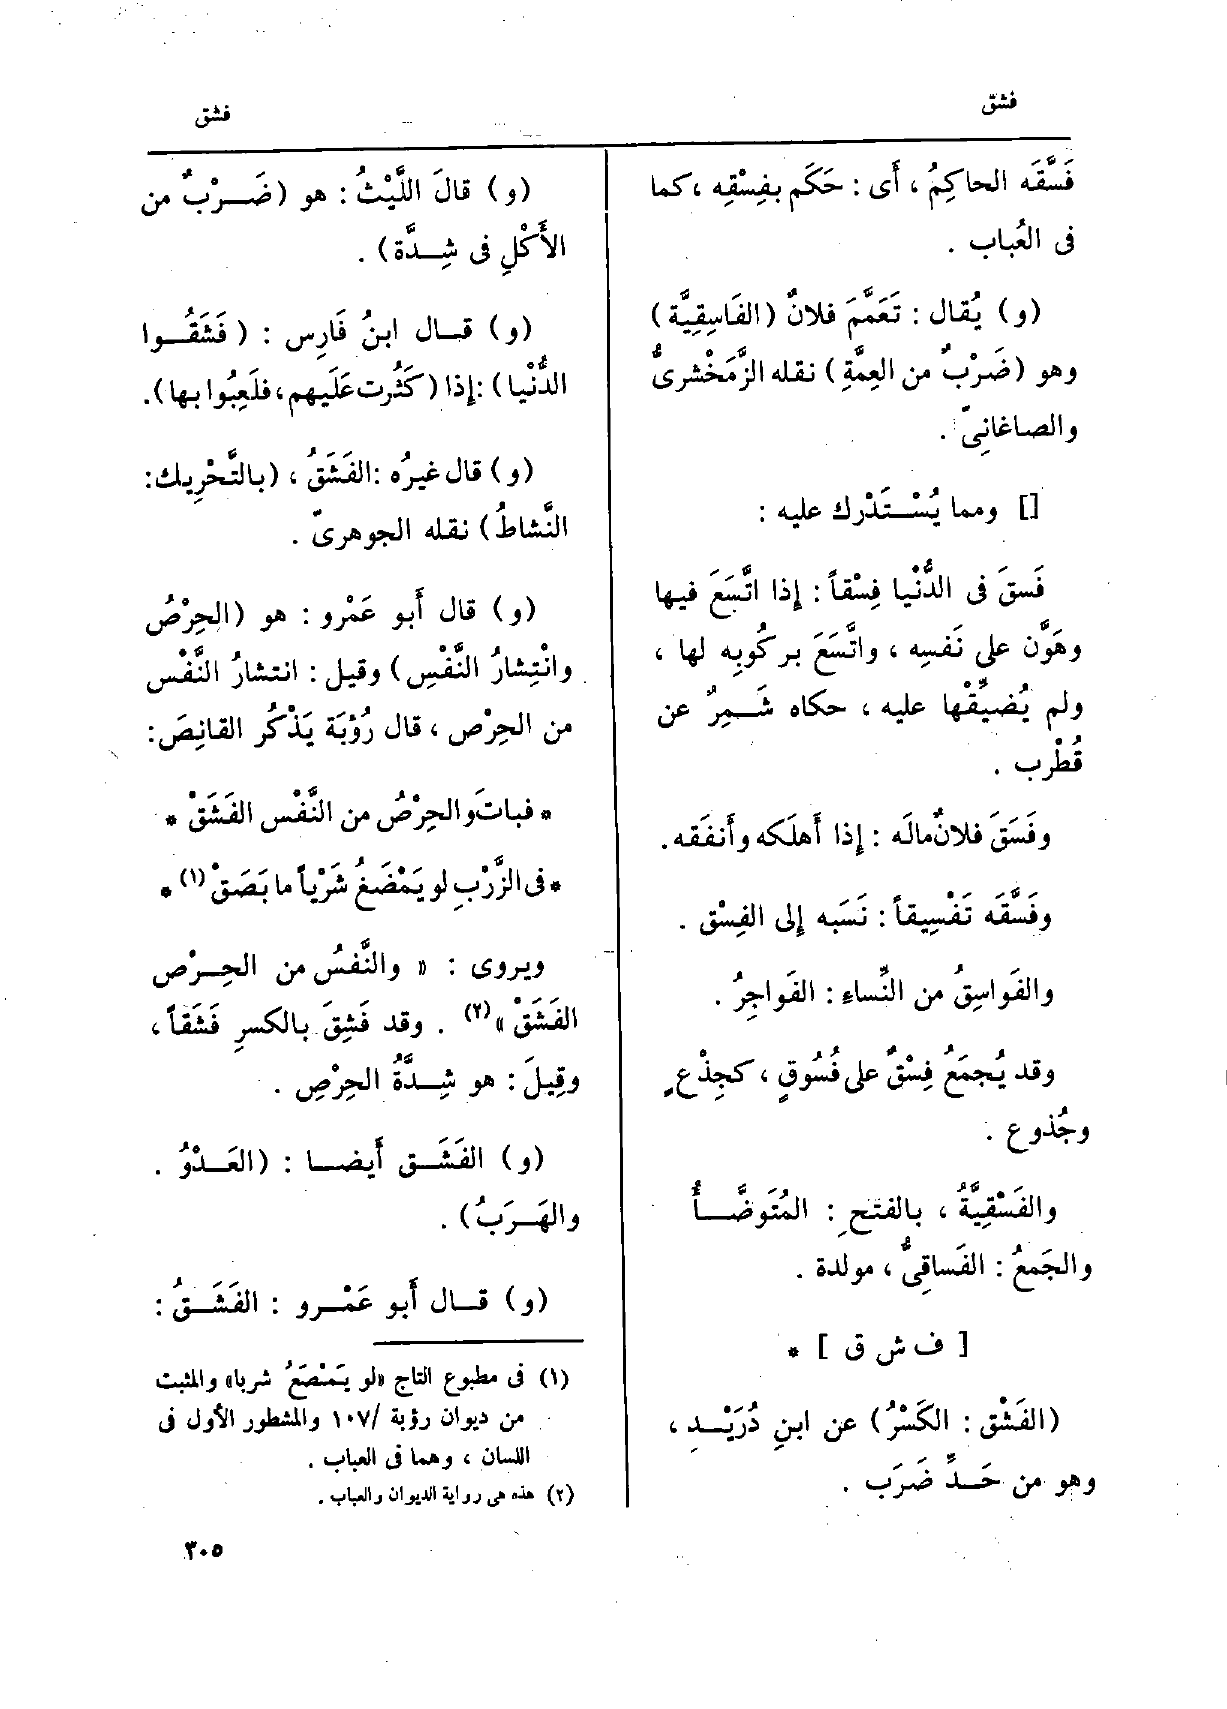 فشق
فشق
فَسَّقَه الحاكِمُ ، أى : حَكَم بفِسْقِه ، كما
فى العُباب .
(و) يُقال : تَعَمَّمَ فلانٌ (الفَاسِقِيَّة)
وهو (ضَرْبٌ من العِمَّةِ) نقله الزَّمَخْشرىُّ
والصاغانِىّ .
[] ومما يُسْتَدْرك عليه :
فَسقَ فى الدُّنْيا فِسْقاً : إذا اتَّسَعَ فيها
وهَوَّن على نَفسِه ، واتَّسَعَ بركُوبِه لها ،
ولم يُضيِّقْها عليه ، حكاه شَمِرٌ عن
قُطْرب .
وفَسَقَ فلانٌ مالَه : إذا أَهلَكه وأَنفَقه.
وفَسَّقَه تَفْسِيقاً : نَسَبه إلى الفِسْق .
والفَواسِقُ من النِّساءِ : الفَواجِرُ .
وقد يُجمَعُ فِسْقٌ على فُسُوقٍ ، كجِذْعٍ
وجُذوع .
والفَسْقِيَّةُ ، بالفتحِ : المُتَوضَّأُ
والجَمعُ : الفَساقِىُّ ، مولدة .
[ ف ش ق ] *
(الفَشْق : الكَسْرُ) عن ابنِ دُرَيْدِ ،
وهو من حَدِّ ضَرَب .
(و) قالَ اللَّيْثُ : هو (ضَرْبٌ من
الأَكْلِ فى شِدَّة) .
(و) قال ابنُ فَارِس : (فَشَقُوا
الدُّنْيا) : إذا (كَثُرت عَلَيهم ، فلَعِبُوا بها).
(و) قال غيرُه : الفَشَقُ ، (بالتَّحْرِيك :
النَّشاطُ) نقله الجوهرىّ .
(و) قال أَبو عَمْرو : هو (الحِرْصُ
وانْتِشارُ النَّفْسِ) وقيل : انتشارُ النَّفْس
من الحِرْص ، قال رُؤبَة يَذْكُر القانِصَ :
* فباتَ والحِرْصُ من النَّفْس الفَشَقْ *
* فى الزَّرْبِ لو يَمْضَغُ شَرْياً ما بَصَقْ (١) *
ويروى : « والنَّفسُ من الحِرْص
الفَشَقْ » (٢) . وقد فَشِقَ بالكسرِ فَشَقاً ،
وقِيلَ : هو شِدَّةُ الحِرْصِ .
(و) الفَشَق أَيضا : (العَدْوُ .
والهَرَبُ) .
(و) قال أَبو عَمْرو : الفَشَقُ :
(١) فى مطبوع التاج «لو يَمْصَعُ شربا» والمثبت
من ديوان رؤبة /١٠٧ والمشطور الأول فى
اللسان ، وهما فى العباب .
(٢) هذه هى رواية الديوان والعباب .
٣٠٥